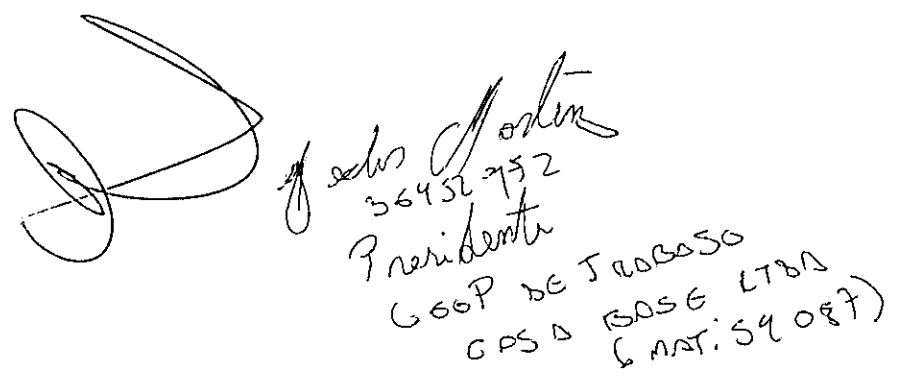 Martin
Presidente
COOP DE TRABAJO
CASA BASE LTDA
(MAT: 59087)